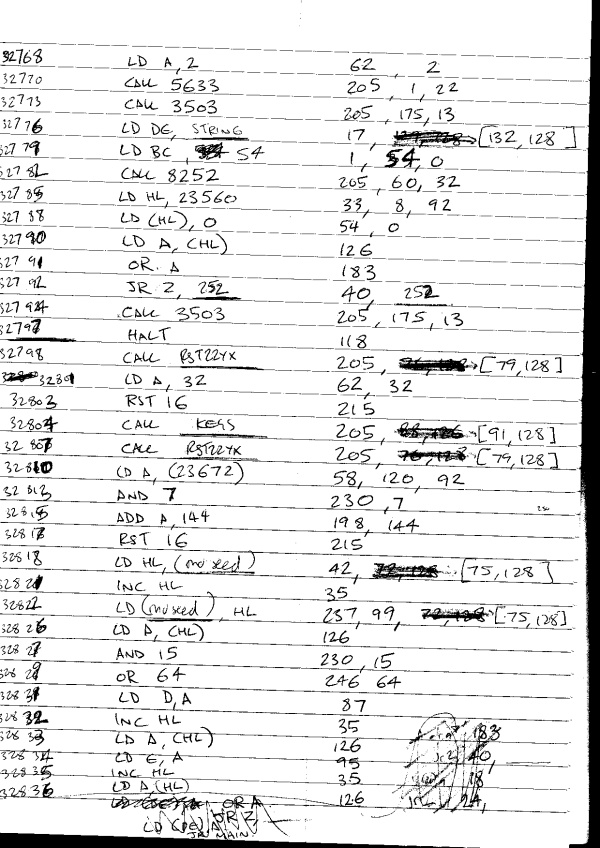 32768 LD A, 2 62, 2
32770 CALL 5633 205, 1, 22
32773 CALL 3503 205, 175, 13
32776 LD DE, STRING 17, [132, 128]
32779 LD BC, 54 1, 54, 0
32782 CALL 8252 205, 60, 32
32785 LD HL, 23560 33, 8, 92
32788 LD (HL), 0 54, 0
32790 LD A, (HL) 126
32791 OR A 183
32792 JR Z, 252 40, 252
32794 CALL 3503 205, 175, 13
32797 HALT 118
32798 CALL RST22YX 205, [79, 128]
32801 LD A, 32 62, 32
32803 RST 16 215
32804 CALL KEGS 205, [91, 128]
32807 CALL RST22YX 205, [79, 128]
32810 LD A, (23672) 58, 120, 92
32813 AND 7 230, 7
32815 ADD A, 144 198, 144
32817 RST 16 215
32818 LD HL, (mo seed) 42, [75, 128]
32821 INC HL 35
32822 LD (mo seed), HL 237, 99, [75, 128]
32826 LD A, (HL) 126
32827 AND 15 230, 15
32829 OR 64 246 64
32831 LD D, A 87
32832 INC HL 35
32833 LD A, (HL) 126 183
32834 LD E, A 95 40,
32835 INC HL 35 18
32836 LD A, (HL) 126 24,
OR A
LD (DE) A OR Z,
JR MAIN